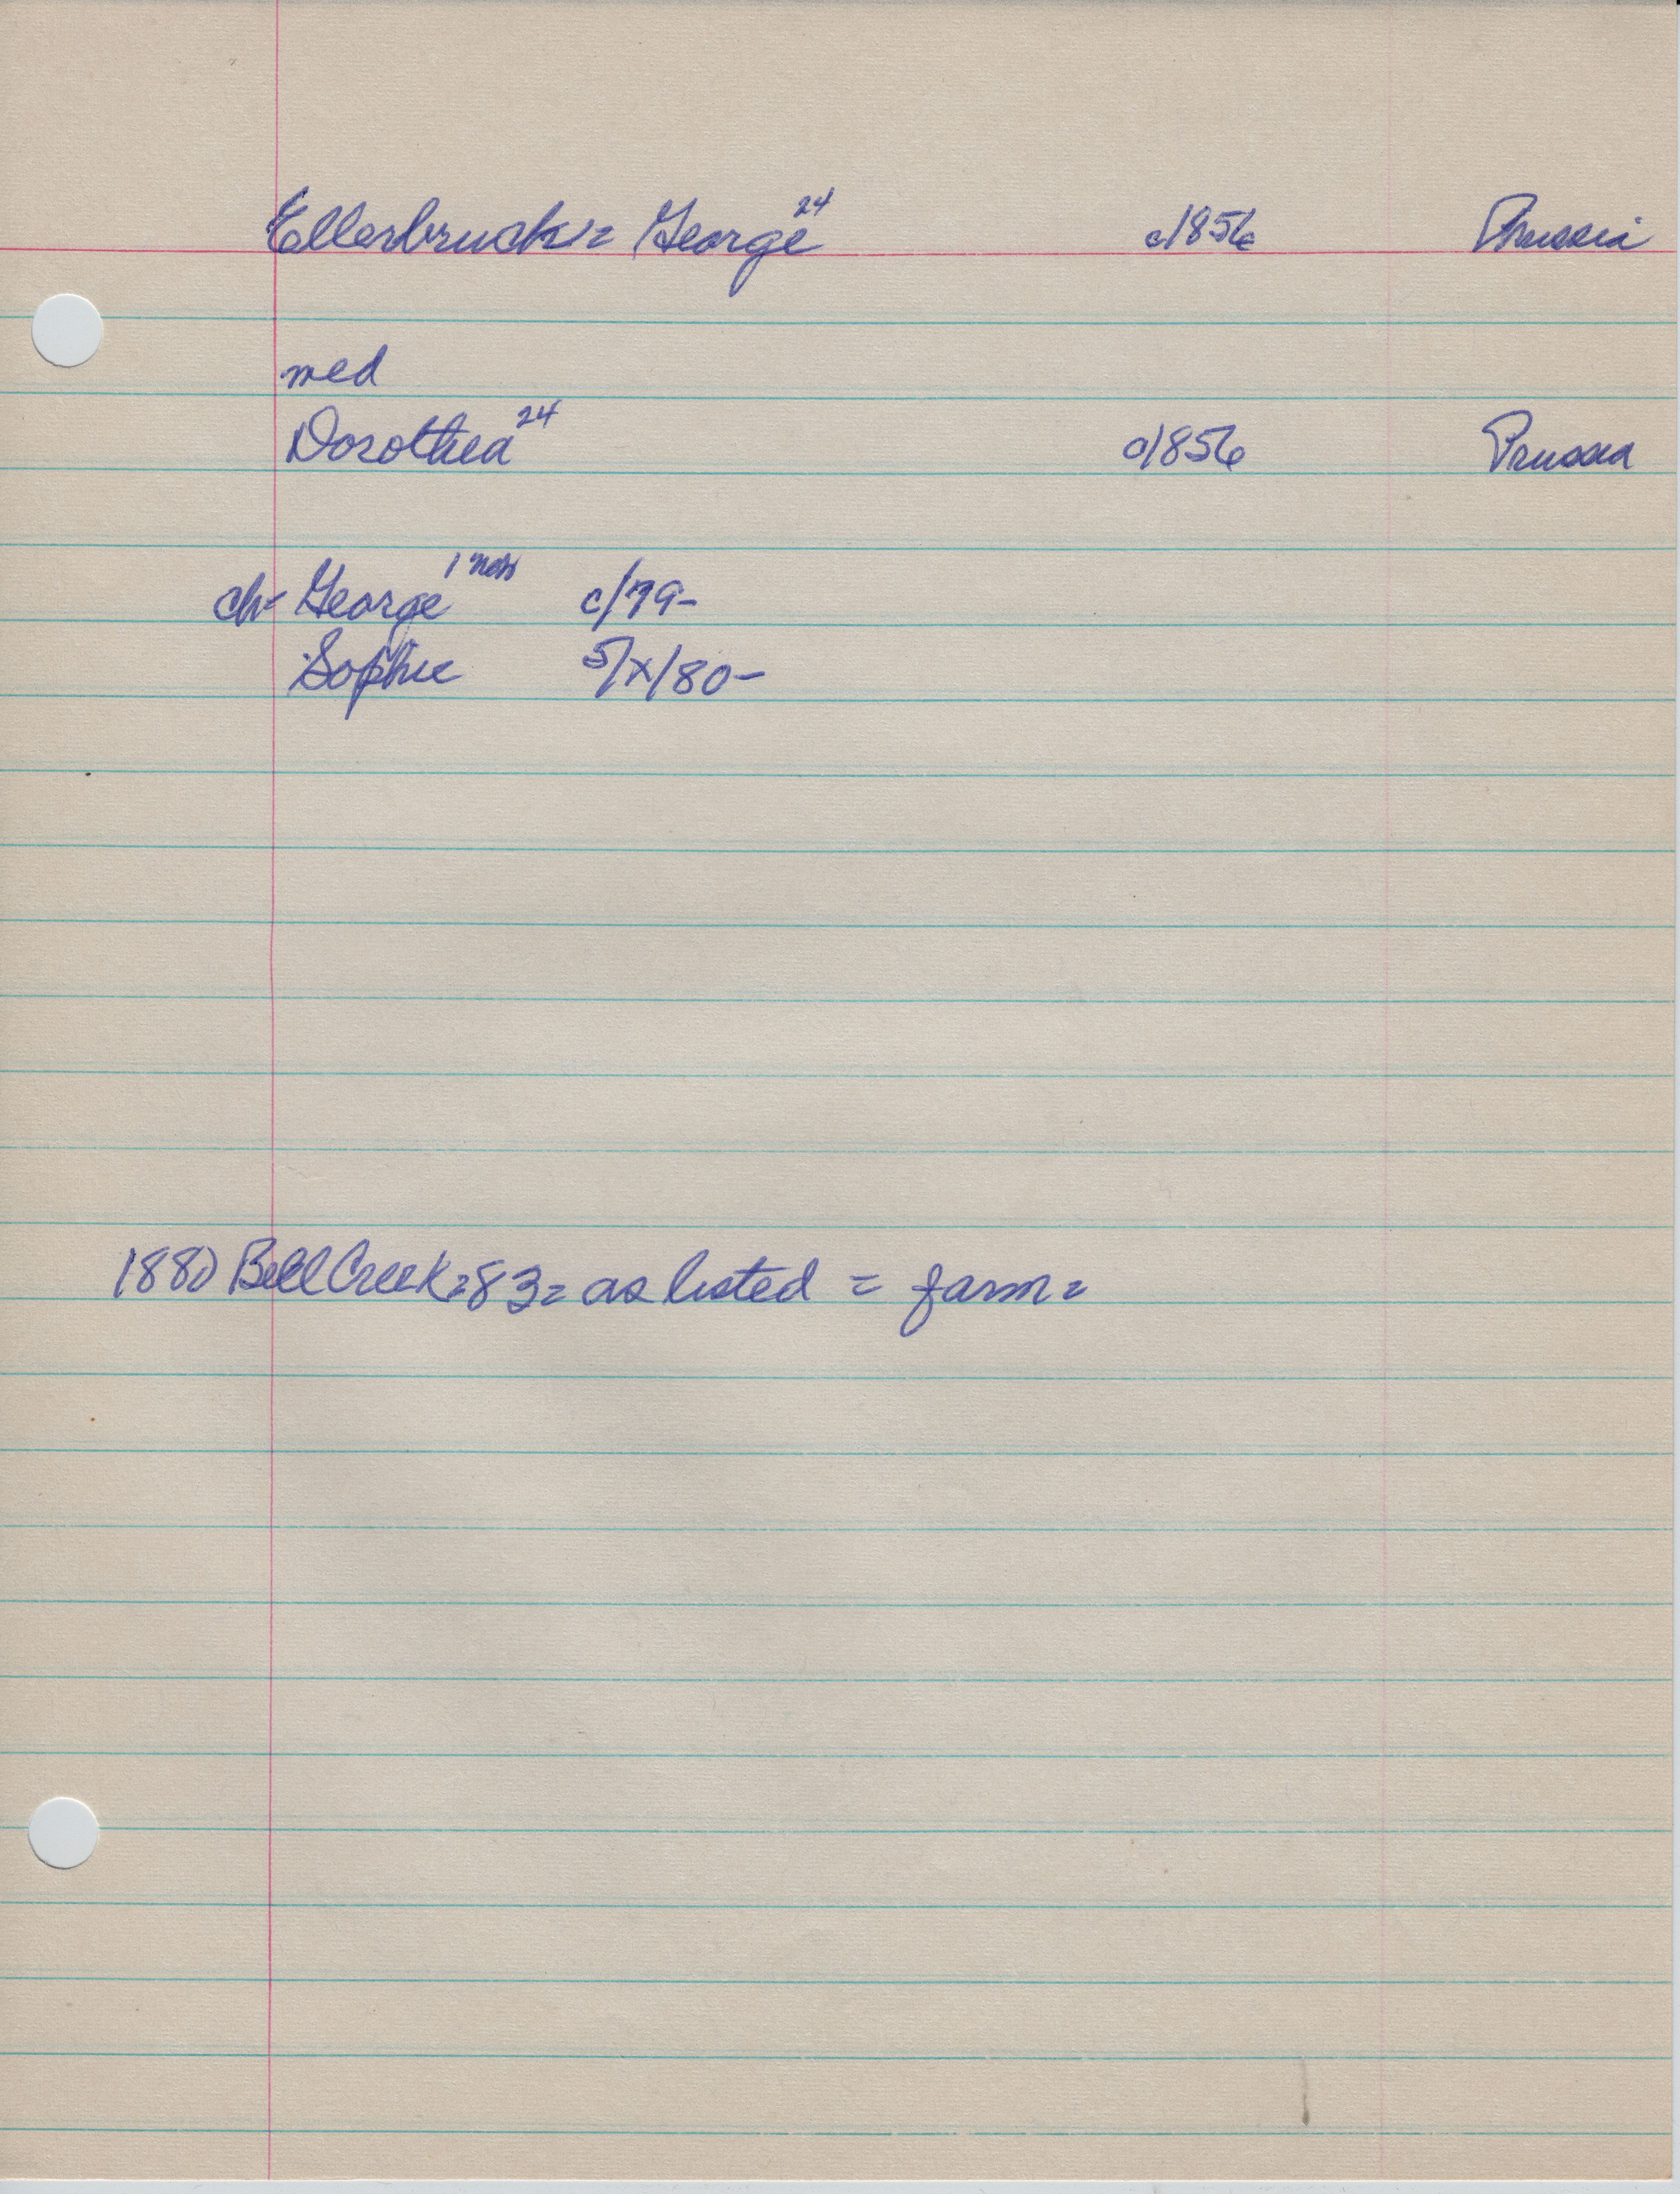 Ellerbruck = George 24 c/1856 Prussia
med
Dorothea 24 c/1856 Prussia
ch- George 1 mos c/79-
Sophie 5/x/80-
1880 Bell Creek = 83 = as listed = farm =